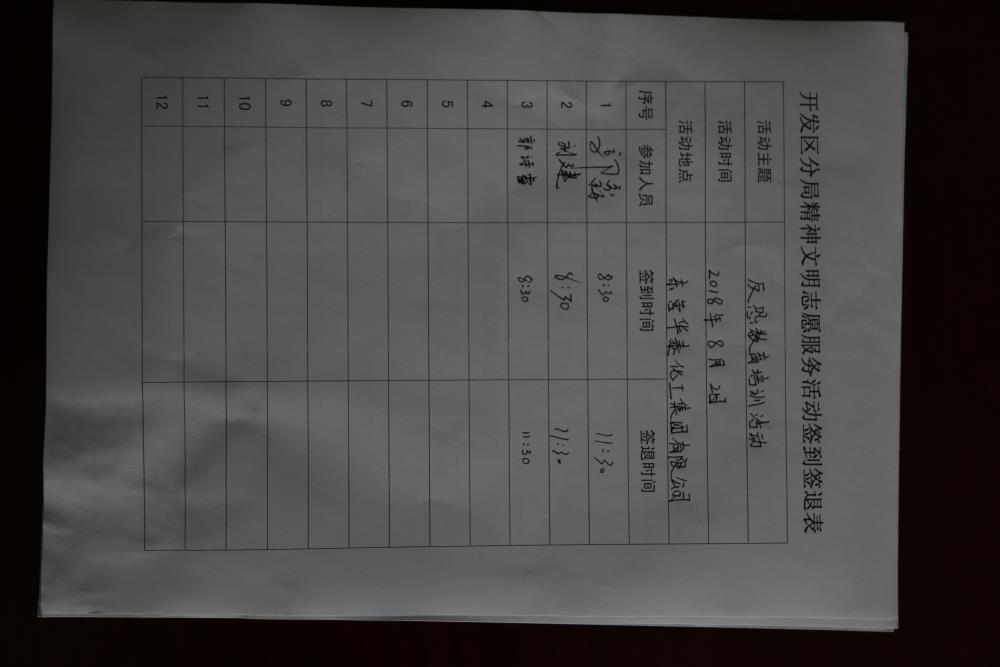 开发区分局精神文明志愿服务活动签到签退表
活动主题 反恐教育培训活动
活动时间 2018年8月2日
活动地点 东营华泰化工集团有限公司
序号 参加人员 签到时间 签退时间
1 8:30 11:30
2 刘建 8:30 11:30
3 郭诗雷 8:30 11:30
4
5
6
7
8
9
10
11
12